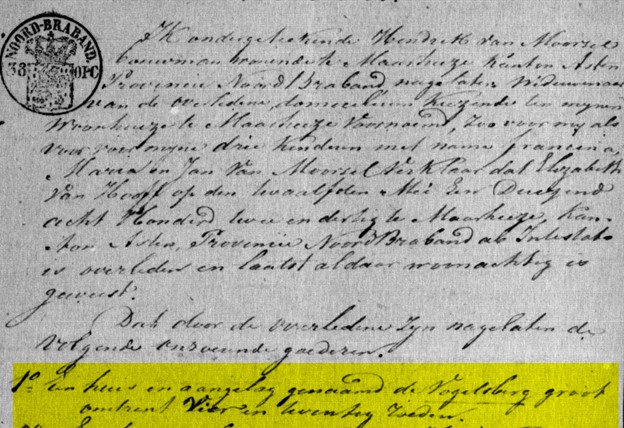 NOORD-BRABAND.
38 OPC
Ik ondergeteekende Hendrik van Moorsel
bouwman wonende te Maarheeze kanton Asten
Provincie Noord Braband nagelaten Weduwnaar
van de overledene, domicilium kiezende ten mynen
Woonhuize te Maarheeze voornoemd, Zoo voor my als
voor myne drie kinderen met name Francina,
Maria en Jan van Moorsel Verklaar dat Elizabeth
van Hooff op den twaalfden Mei Een Duezend
acht Honderd twee en dertig te Maarheeze, Kan-
ton Asten, Provincie Noord Braband ab Intestato
is overleden en laatst aldaar woonachtig is
geweest.
Dat door de overledene Zyn nagelaten de
volgende onroerende goederen.
1o Een huis en aangelag genaamd de Vogelsberg groot
omtrent Vier en twentig roeden.